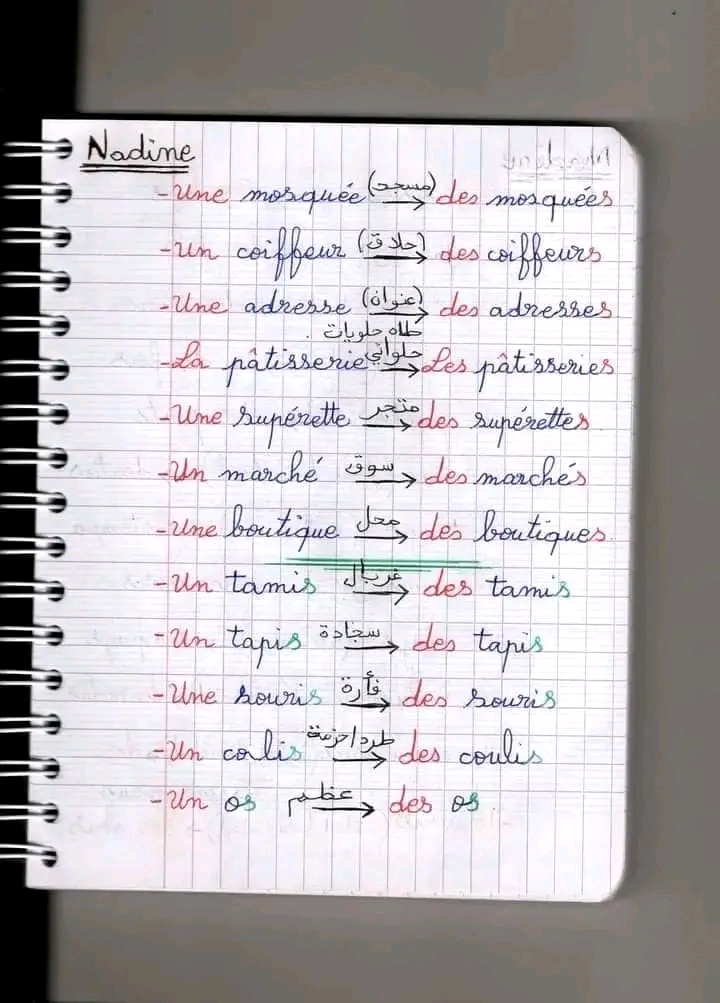 Nadine
- Une mosquée (مسجد) → des mosquées
- Un coiffeur (حلاق) → des coiffeurs
- Une adresse (عنوان) → des adresses
طاه حلويات
- La pâtisserie حلواني → Les pâtisseries
- Une supérette متجر → des supérettes
- Un marché سوق → des marchés
- Une boutique محل → des boutiques
- Un tamis غربال → des tamis
- Un tapis سجادة → des tapis
- Une souris فأرة → des souris
- Un colis طرد/حزمة → des coulis
- Un os عظم → des os